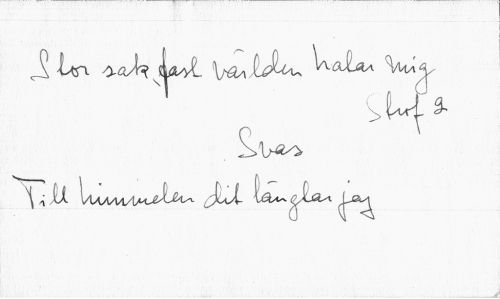 Stor sak, fast världen hatar mig
Strof 2
Svas
Till himmelen dit längtar jag